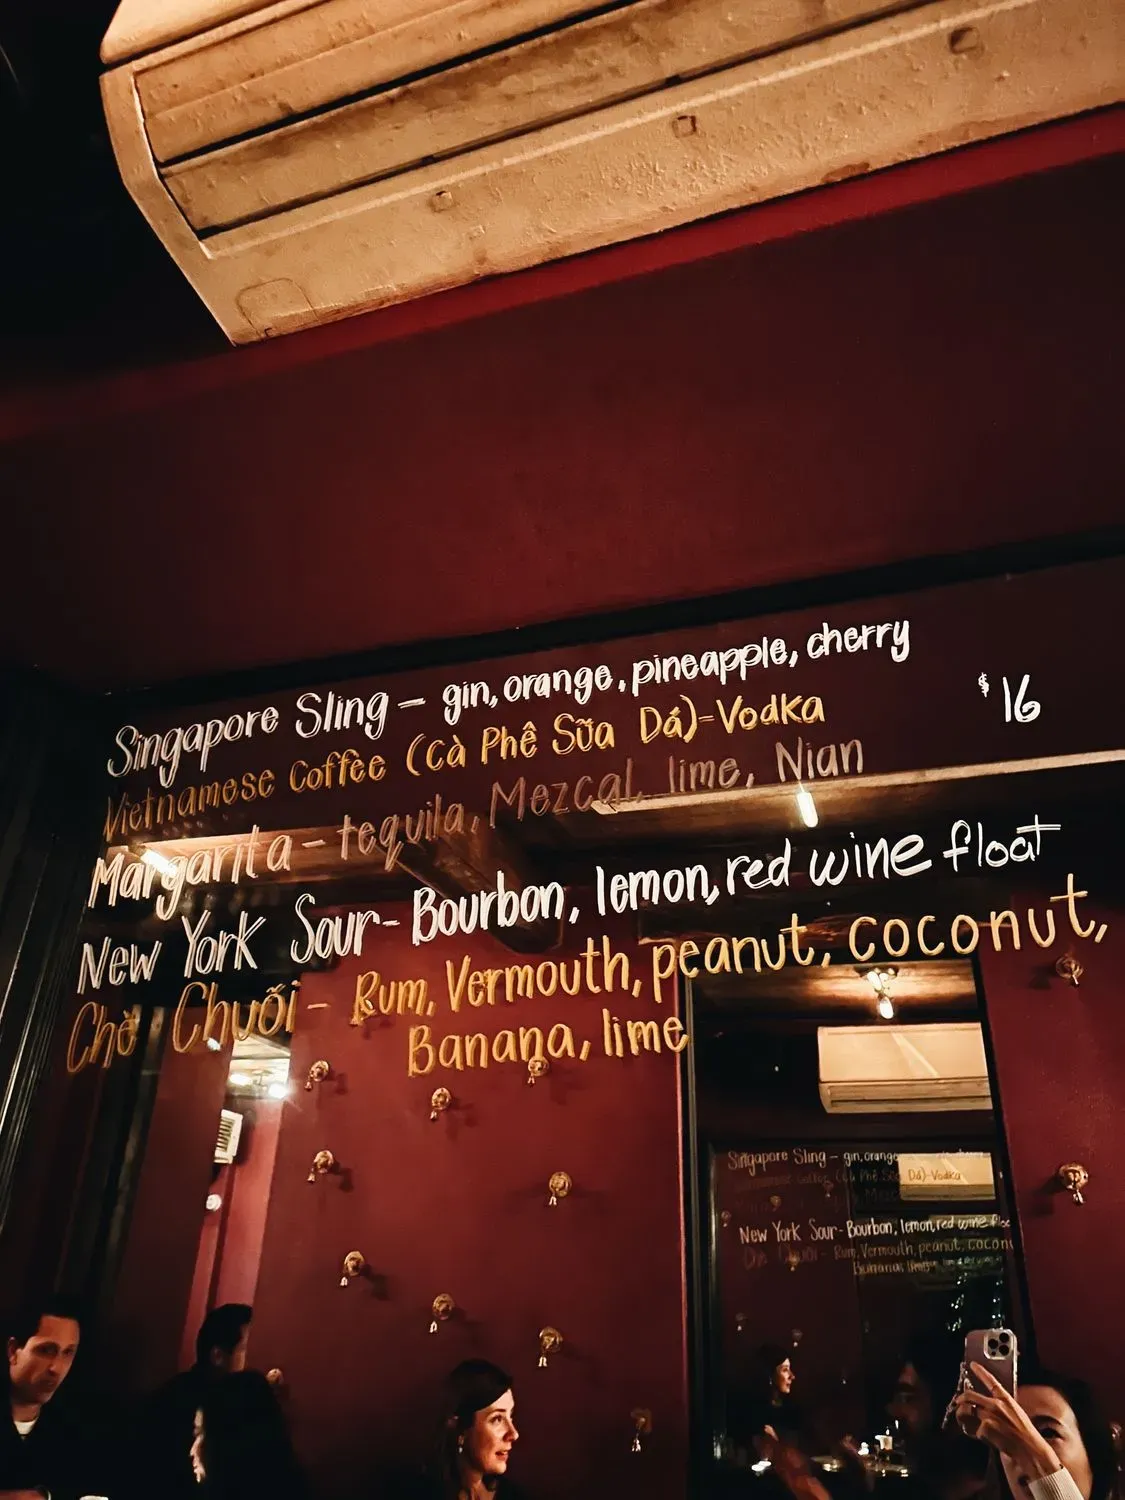 Singapore Sling - gin, orange, pineapple, cherry
$16
Vietnamese Coffee (Cà Phê Sữa Dá) - Vodka
Margarita - tequila, Mezcal, lime, Nian
New York Sour - Bourbon, lemon, red wine float
Chè Chuối - Rum, Vermouth, peanut, coconut,
Banana, lime
Singapore Sling - gin, orange
Dá) - Vodka
New York Sour - Bourbon, lemon, red wine
Rum, Vermouth, peanut, cocon